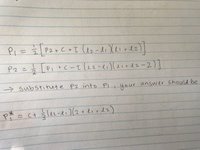 P1 = 1/2 [P2 + C + T (l2 - l1)(l1 + l2)]
P2 = 1/2 [P1 + C - T (l2 - l1)(l1 + l2 - 2)]
→ substitute P2 into P1, your answer should be
P1* = C + 1/3 T (l2 - l1)(2 + l1 + l2)